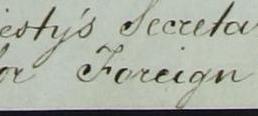 esty's Secreta
or Foreign